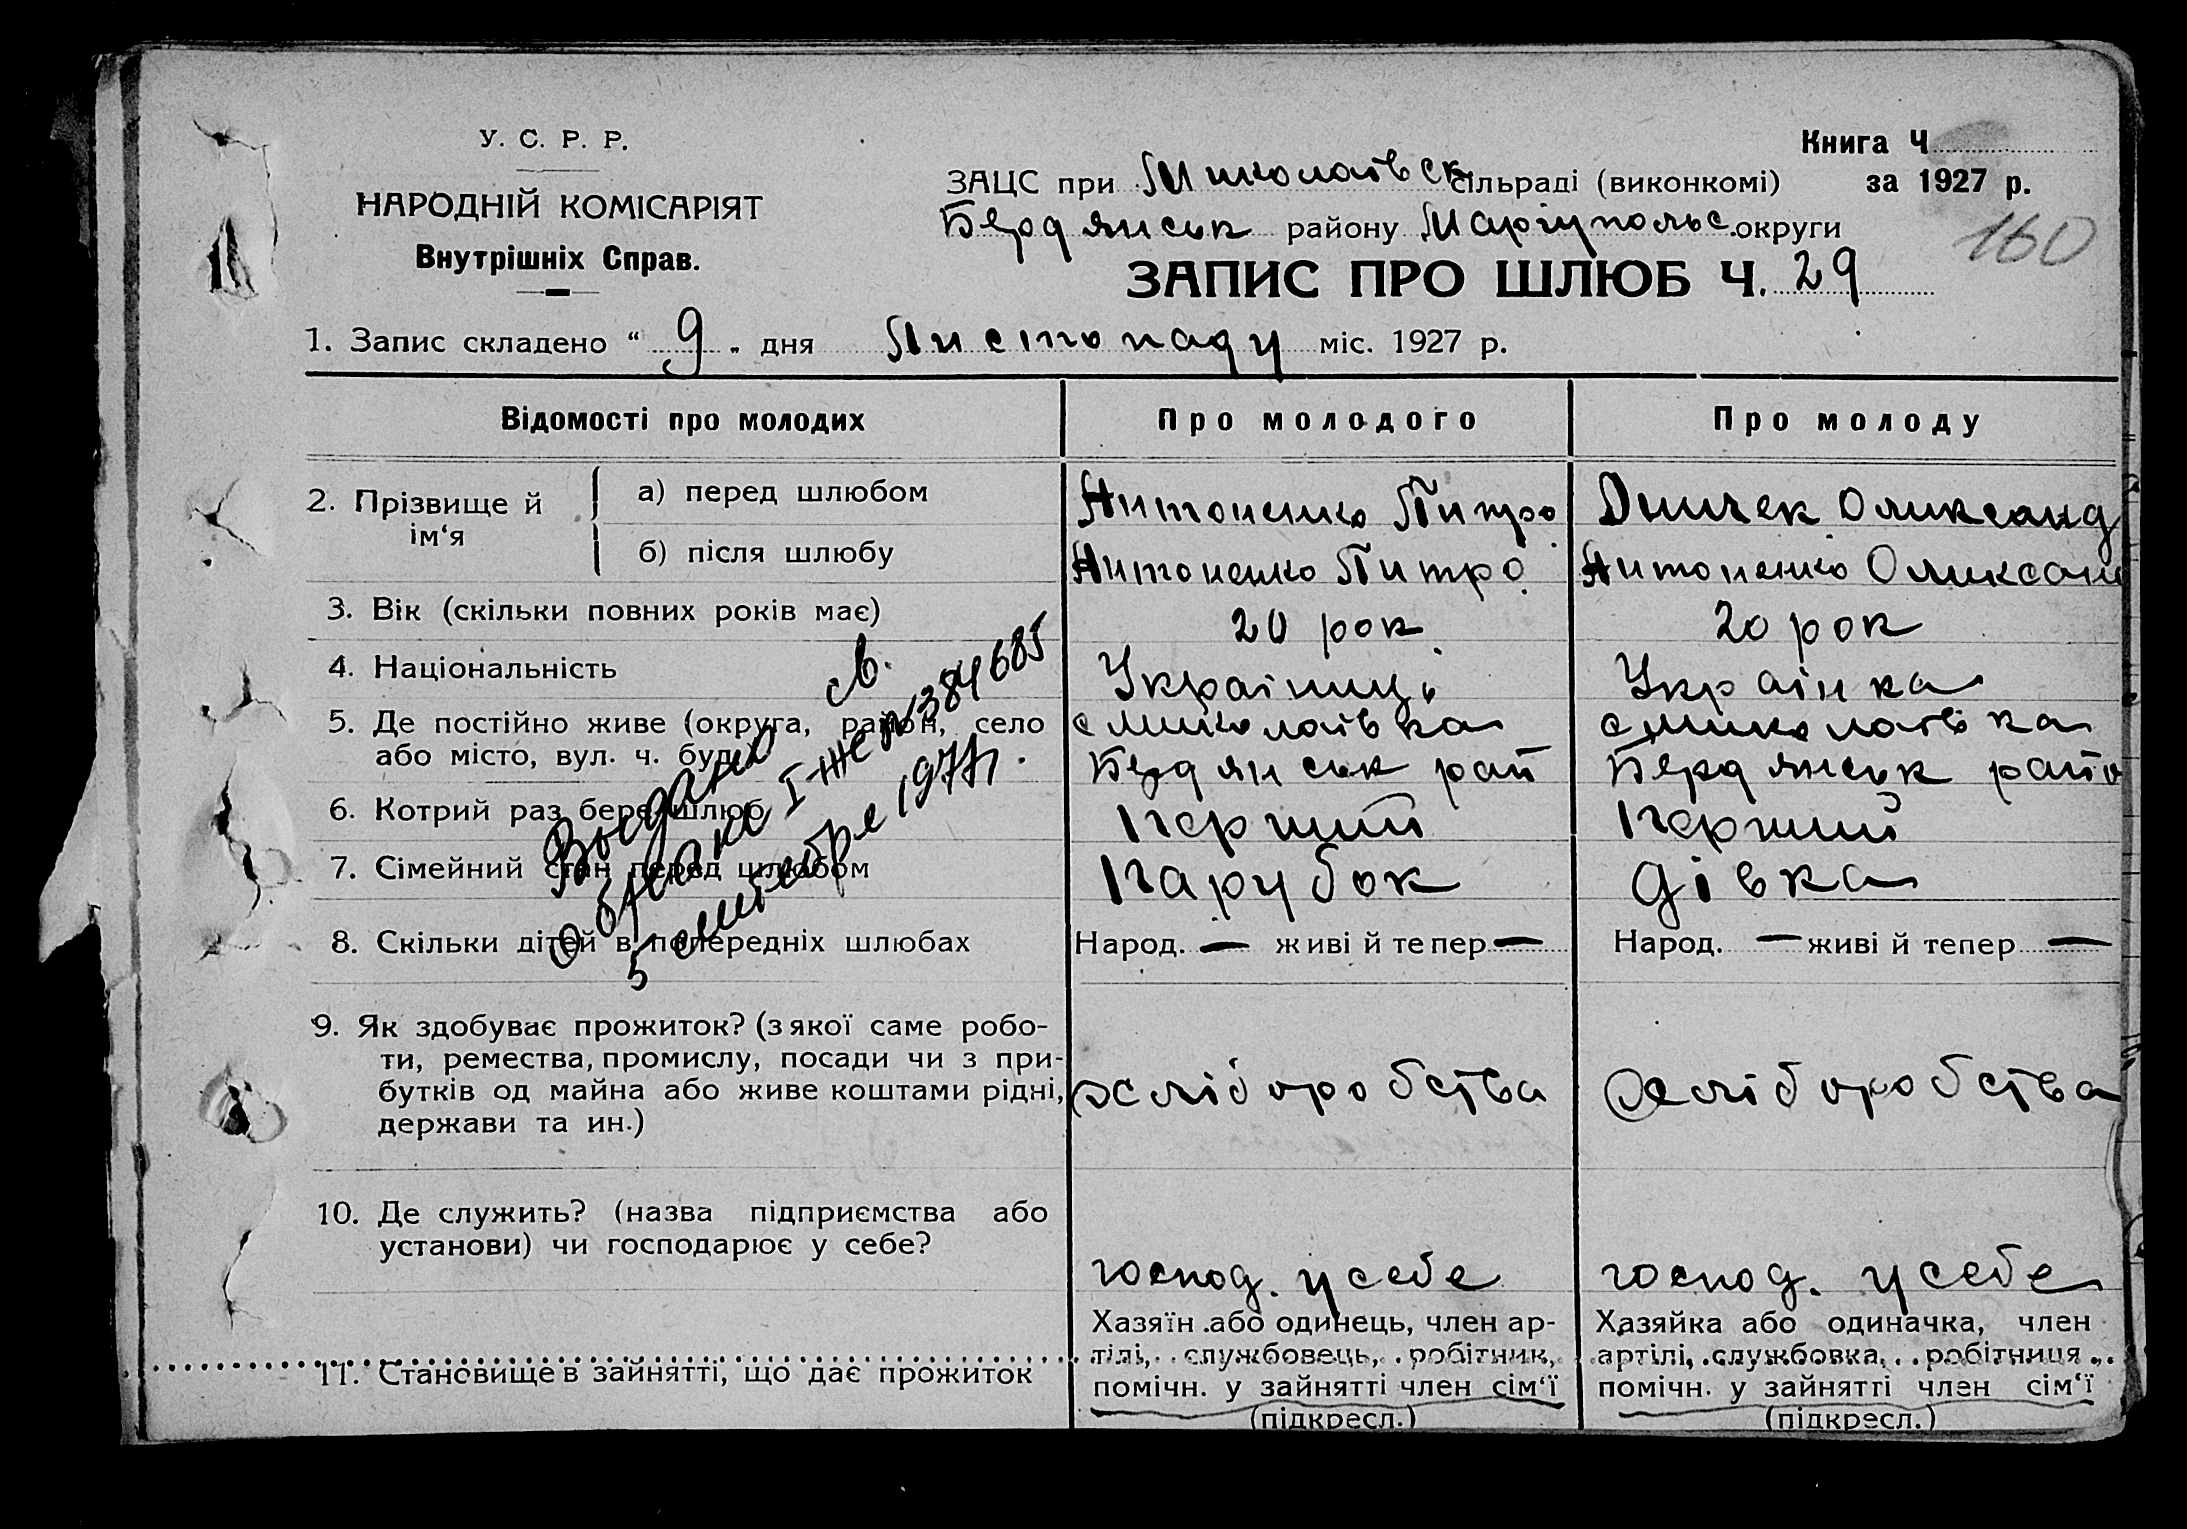 У. С. Р. Р.
НАРОДНІЙ КОМІСАРІЯТ
Внутрішніх Справ.
Книга Ч
за 1927 р.
160
ЗАЦС при Миколаївск сільраді (виконкомі)
Бердянськ району Маріупольс. округи
ЗАПИС ПРО ШЛЮБ Ч. 29
1. Запис складено “ 9 „ дня Листопаду міс. 1927 р.
Відомості про молодих Про молодого Про молоду
2. Прізвище й ім‘я
а) перед шлюбом Антоненко Питро Олександ
б) після шлюбу Антоненко Питро Антоненко Олександ
3. Вік (скільки повних років має) 20 рок 20 рок
4. Національність Україниць Українка
5. Де постійно живе (округа, район, село с Миколаївка с Миколаївка
або місто, вул. ч. буд.) Бердянськ рай Бердянськ райо
6. Котрий раз бере шлюб Перший Перший
7. Сімейний стан перед шлюбом Парубок дівка
8. Скільки дітей в попередніх шлюбах Народ. — живі й тепер — Народ. — живі й тепер —
9. Як здобуває прожиток? (з якої саме робо-
ти, ремества, промислу, посади чи з при-
бутків од майна або живе коштами рідні, хліборобства хліборобства
держави та ин.)
10. Де служить? (назва підприємства або
установи) чи господарює у себе?
господ. у себе господ. у себе
11. Становище в зайнятті, що дає прожиток
Хазяїн або одинець, член ар-
тілі, службовець, робітник,
помічн. у зайнятті член сім‘ї
(підкресл.)
Хазяйка або одиначка, член
артілі, службовка, робітниця,
помічн. у зайнятті член сім‘ї
(підкресл.)
Выдано св.
о браке I-ЖС № 384685
5 сентября 1977г.